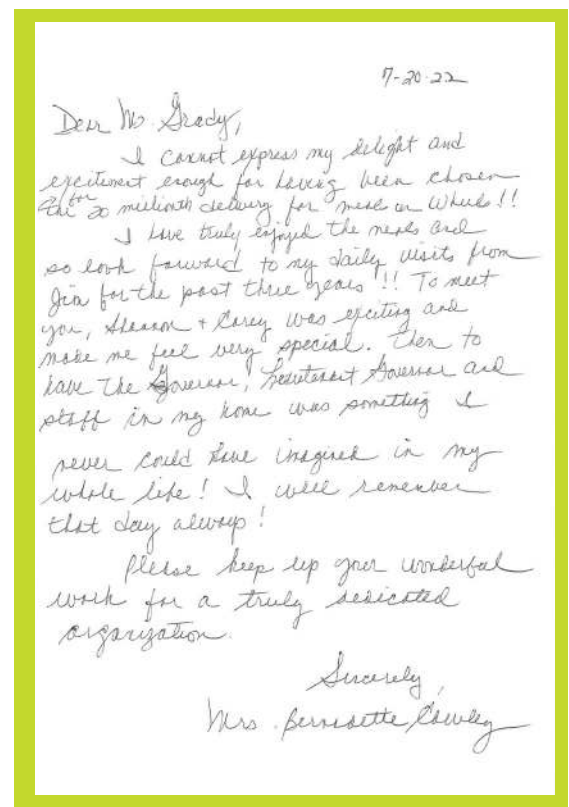 7-20-22
Dear Ms. Grady,
I cannot express my delight and
excitement enough for having been chosen
for
the 20 millionth delivery for meals on wheels!!
I have truly enjoyed the meals and
so look forward to my daily visits from
Jim for the past three years!! To meet
you, Shannon + Corey was exciting and
made me feel very special. Then to
have the Governor, Lieutenant Governor and
staff in my home was something I
never could have imagined in my
whole life! I will remember
that day always!
Please keep up your wonderful
work for a truly dedicated
organization.
Sincerely,
Mrs. Bernadette Cowley